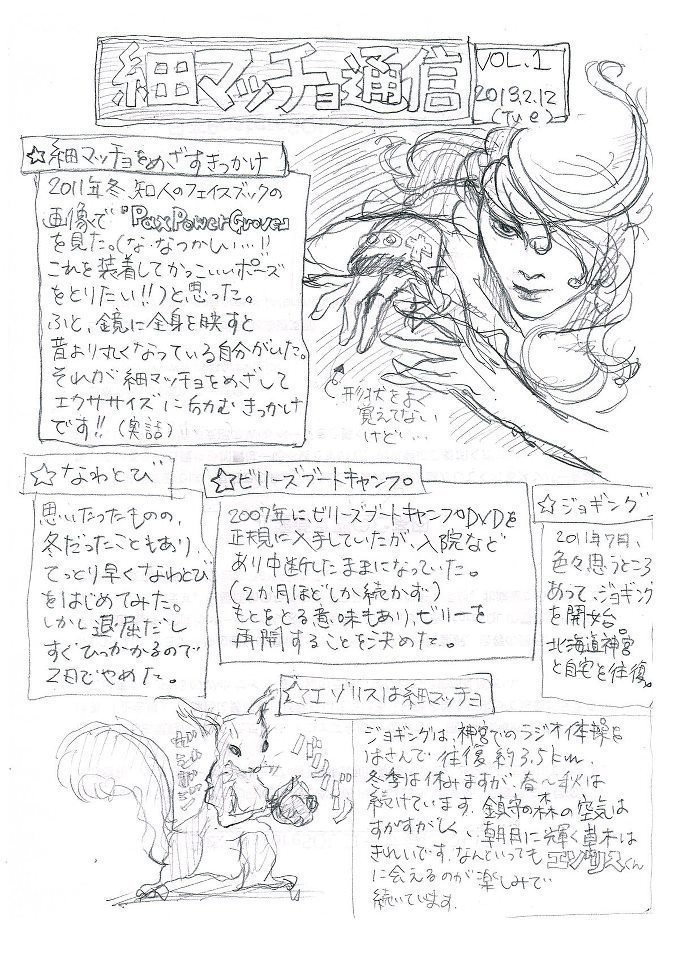 細マッチョ通信
VOL.1
2013.2.12
(Tue)
☆細マッチョをめざすきっかけ
2011年冬 知人のフェイスブックの
画像で『PaxPowerGlove』
を見た。(な・なつかしい…!!
これを装着してかっこいいポーズ
をとりたい!!)と思った。
ふと、鏡に全身を映すと
昔より丸くなっている自分がいた。
それが細マッチョをめざして
エクササイズに向かむきっかけ
です!! (実話)
形状をよく
覚えてない
けど…
☆なわとび
思いたったものの、
冬だったこともあり、
てっとり早くなわとび
をはじめてみた。
しかし退屈だし
すぐひっかかるので
2日でやめた。
☆ビリーズブートキャンプ
2007年に、ビリーズブートキャンプDVDを
正規に入手していたが、入院など
あり中断したままになっていた。
(2か月ほどしか続かず)
もとをとる意味もあり、ビリーを
再開することを決めた。
☆ジョギング
2011年7月、
色々思うところ
あって、ジョギング
を開始。
北海道神宮
と自宅を往復。
☆エゾリスは細マッチョ
ジョギングは、神宮でのラジオ体操を
はさんで往復約3.5km.
冬季は休みますが、春〜秋は
続けています。鎮守の森の空気は
すがすがしく、朝日に輝く草木は
きれいです。なんといってもエゾリスくん
に会えるのが楽しみで
続いています.
バリバリ